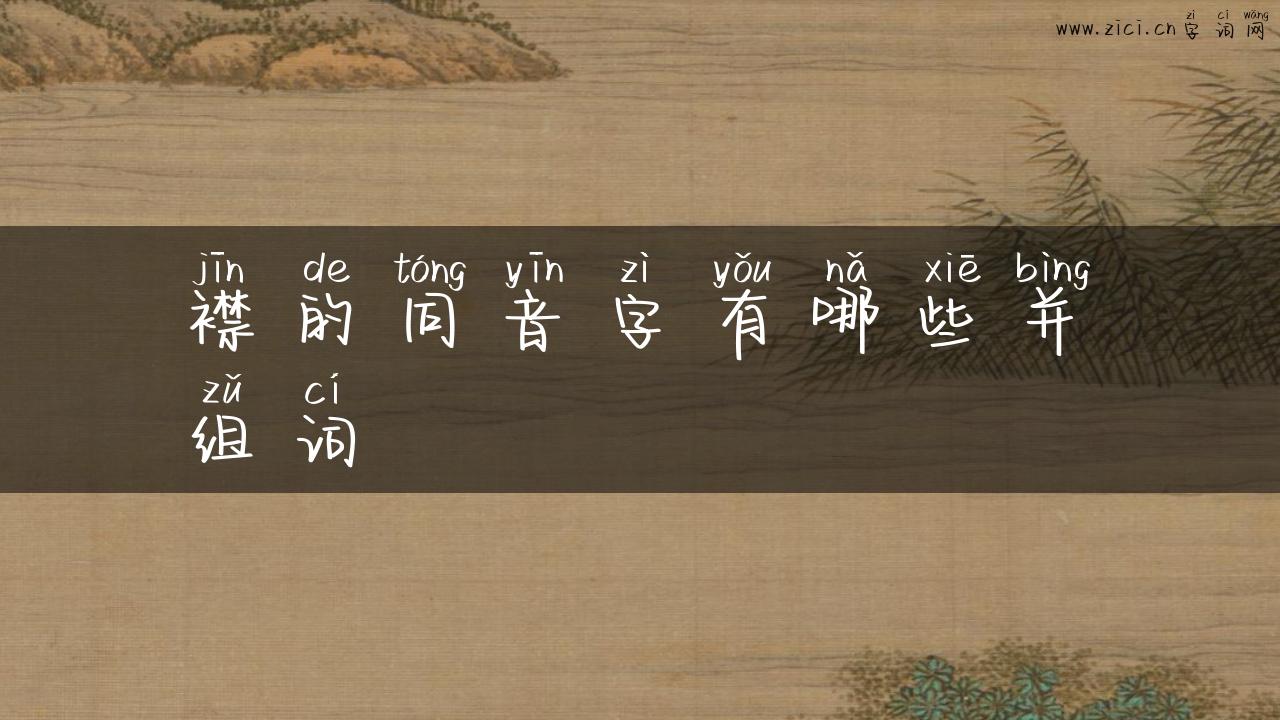 zì cí wǎng
www.zici.cn 字 词 网
jīn de tóng yīn zì yǒu nǎ xiē bìng
襟 的 同 音 字 有 哪 些 并
zǔ cí
组 词